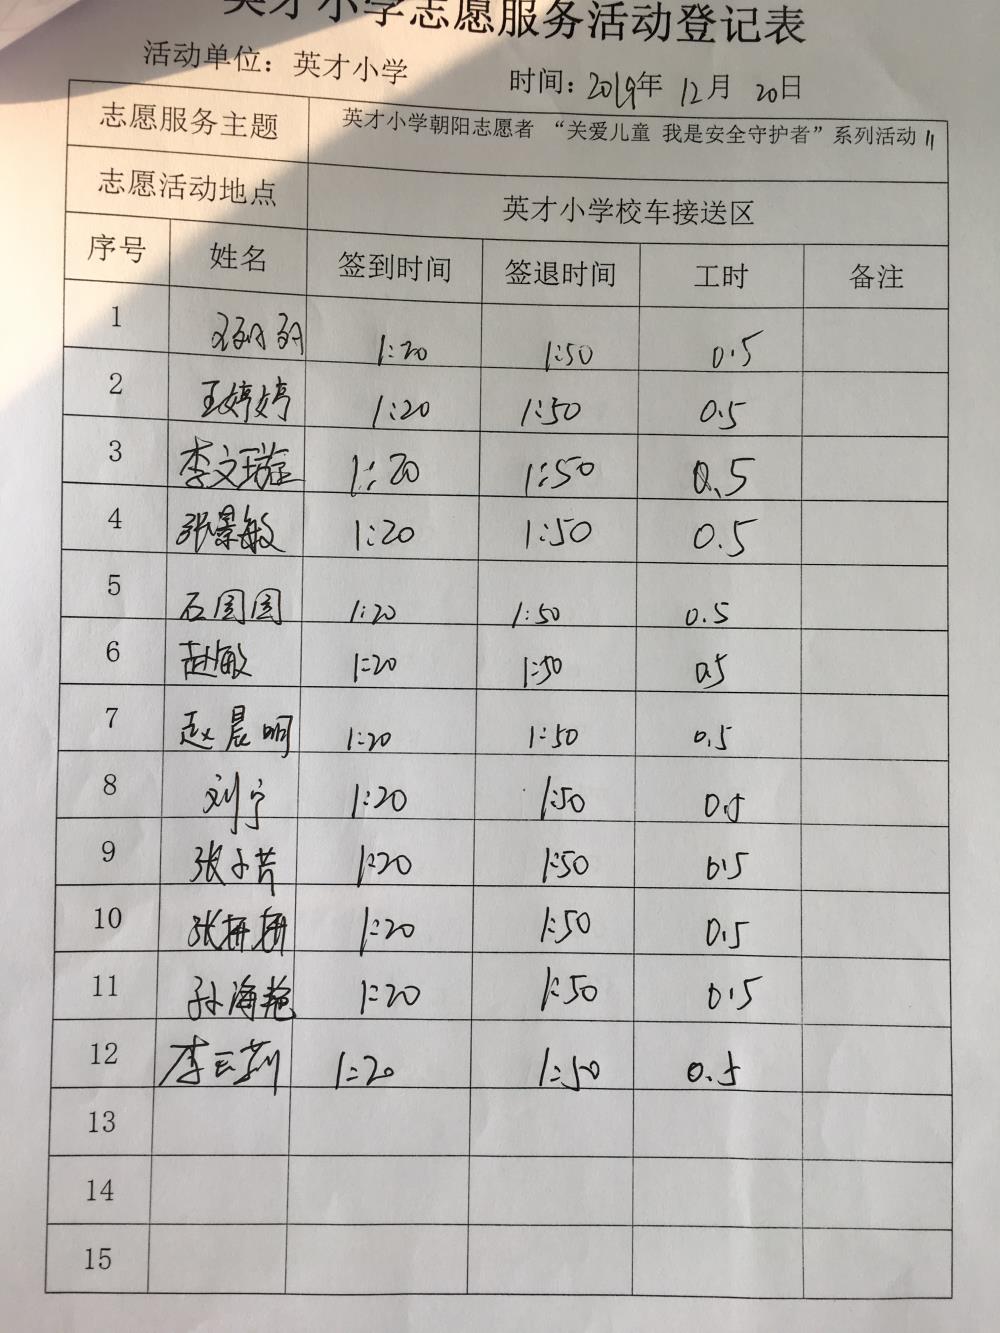 英才小学志愿服务活动登记表
活动单位：英才小学 时间：2019年 12月 20日
志愿服务主题 英才小学朝阳志愿者 “关爱儿童 我是安全守护者”系列活动 11
志愿活动地点 英才小学校车接送区
序号 姓名 签到时间 签退时间 工时 备注
1 1:20 1:50 0.5
2 王婷婷 1:20 1:50 0.5
3 李文璇 1:20 1:50 0.5
4 张景敏 1:20 1:50 0.5
5 石圆圆 1:20 1:50 0.5
6 赵敏 1:20 1:50 0.5
7 赵晨明 1:20 1:50 0.5
8 刘宁 1:20 1:50 0.5
9 1:20 1:50 0.5
10 张妍妍 1:20 1:50 0.5
11 孙海艳 1:20 1:50 0.5
12 1:20 1:50 0.5
13
14
15